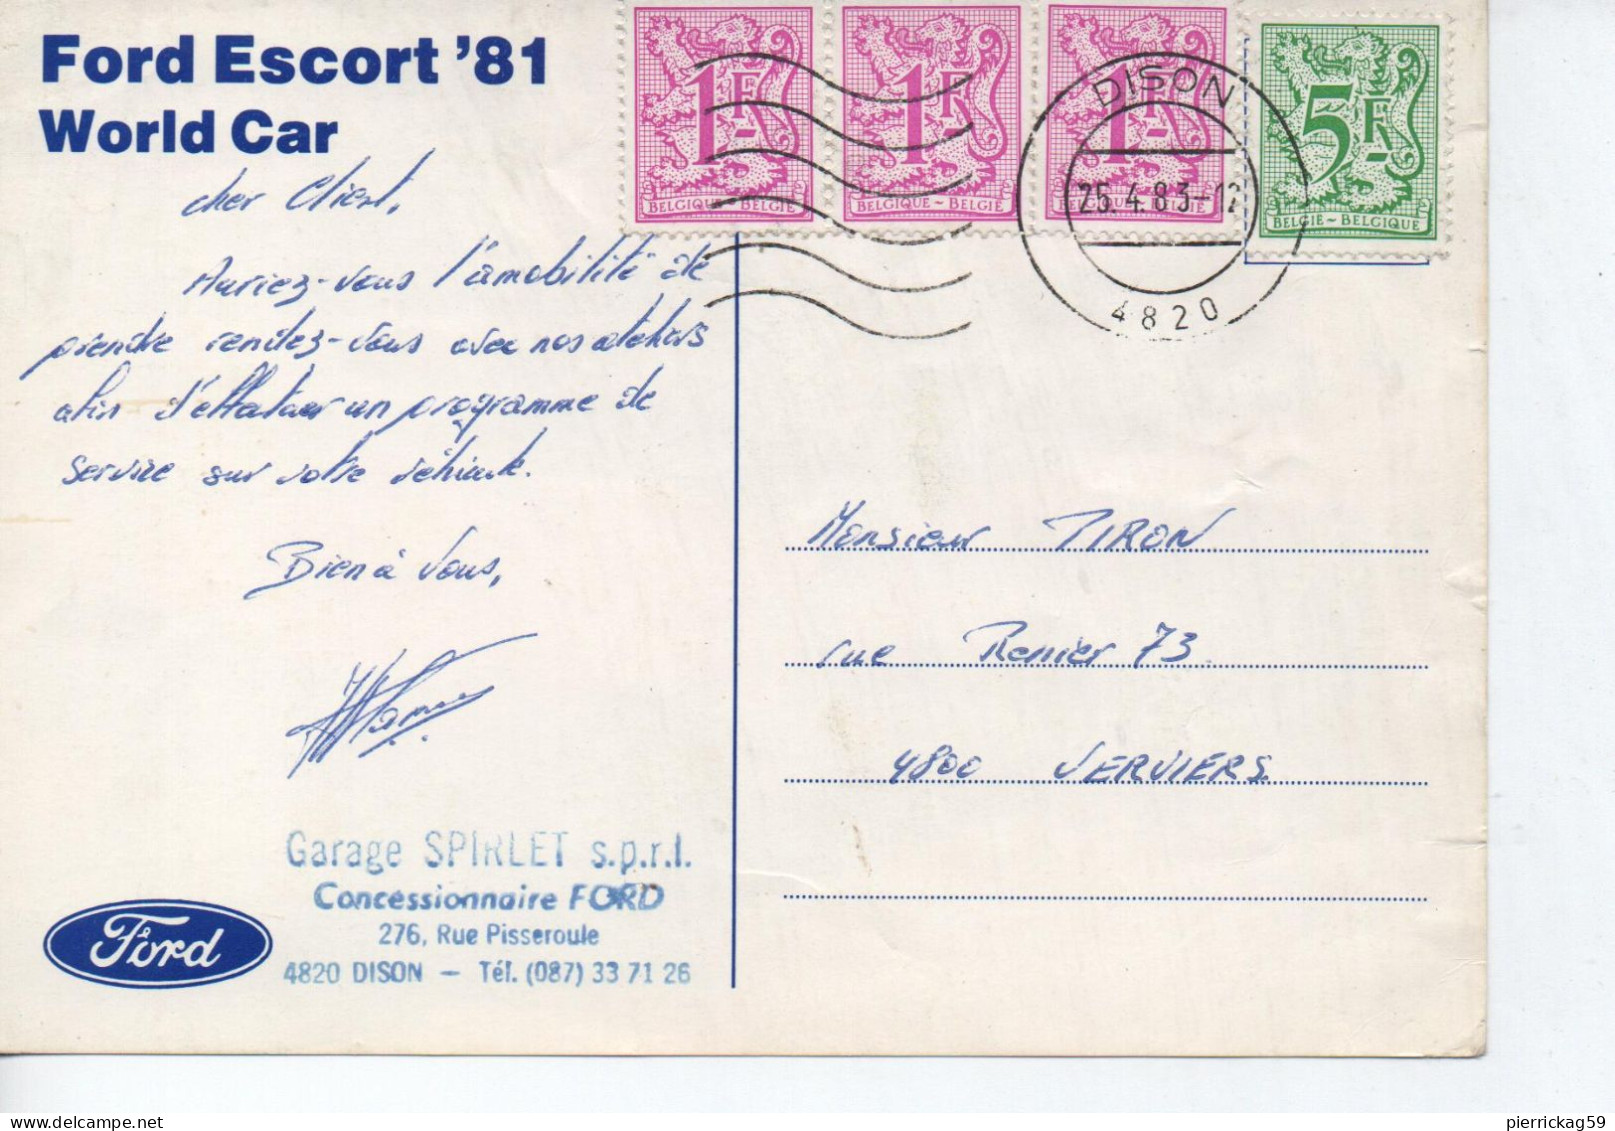 Ford Escort '81
World Car
cher Client,
Auriez-vous l'amobilité de
prendre rendez-vous avec nos ateliers
afin d'effectuer un programme de
service sur votre véhicule.
Bien à Vous,
Garage SPIRLET s.p.r.l.
Concessionnaire FORD
276, Rue Pisseroule
4820 DISON — Tél. (087) 33 71 26
Ford
1F
BELGIQUE~BELGIË
1F
BELGIQUE~BELGIË
1F
BELGIQUE~BELGIË
5F
BELGIË~BELGIQUE
DISON
25.4.83-12
4820
Monsieur PIRON
rue Renier 73.
4800 VERVIERS.
pierrickag59